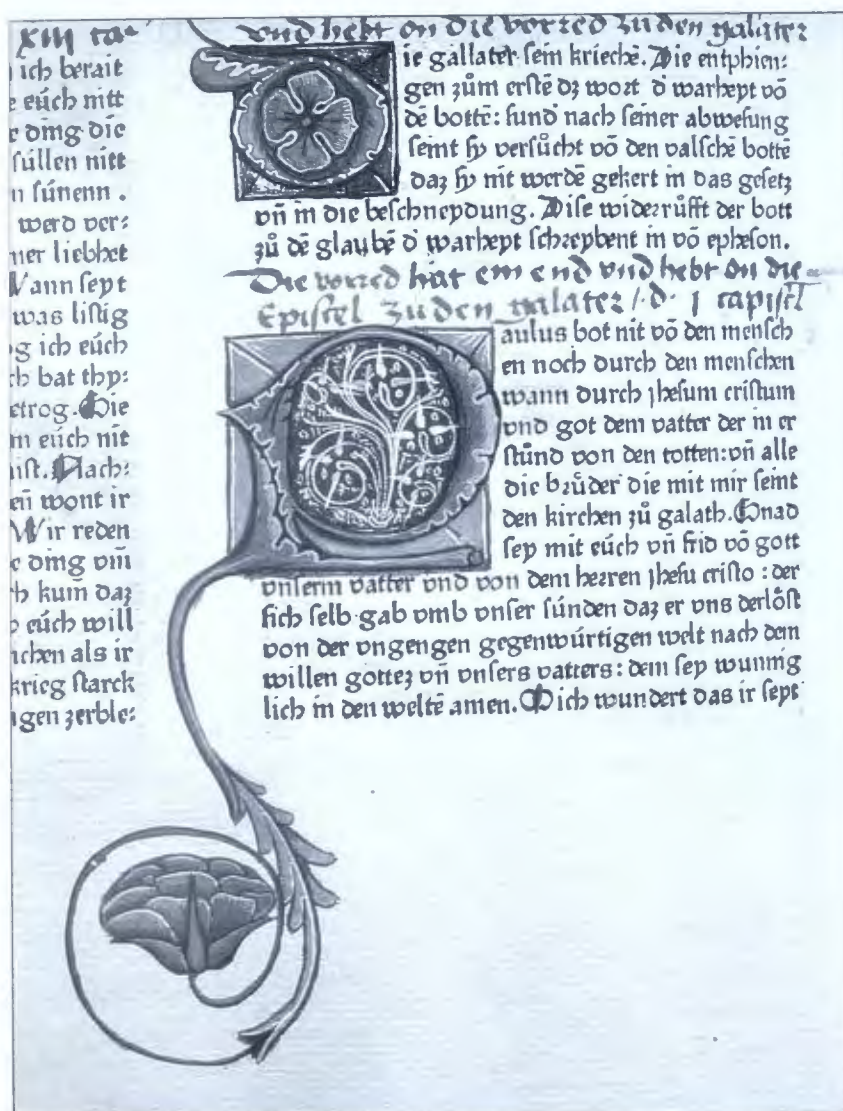 XIII ca-
ich berait
e eúch nitt
c ding die
ſúllen nitt
n ſúnenn .
werd ver:
ner liebhet
Wann ſeyt
was liſtig
g ich eúch
ch bat thy:
etrog. Die
m eúch nit
niſt. Nach:
en wont ir
Wir reden
c ding vm̄
ch kum daz
eúch will
ichen als ir
krieg ſtarck
igen zerble:
vnd hebt on die vorred zu den galater
ie gallater ſein kriechē. Die entphien:
gen zům erſtē dz wort d̾ warheyt vō
dē bottē: ſund nach ſeiner abweſung
ſeint ſy verſůcht vō den valſchē bottē
daz ſy nit werdē gekert in das geſetz
vn̄ in die beſchneydung. Diſe widerrůfft der bott
zů dē glaubē d̾ warheyt ſchreybent in vō epheſon.
Die vorred hat ein end vnd hebt on die
Epiſtel zu den galater / d· j capitel
Paulus bot nit vō den menſch
en noch durch den menſchen
wann durch jheſum criſtum
vnd got dem vatter der in er
ſtůnd von den totten: vn̄ alle
die brůder die mit mir ſeint
den kirchen zů galath. Gnad
ſey mit eúch vn̄ frid vō gott
vnſerm vatter vnd von dem herren jheſu criſto : der
ſich ſelb gab vmb vnſer ſúnden daz er vns derlöſt
von der vngengen gegenwúrtigen welt nach dem
willen gottez vn̄ vnſers vatters: dem ſey wunnig
lich in den weltē amen. Mich wundert das ir ſeyt